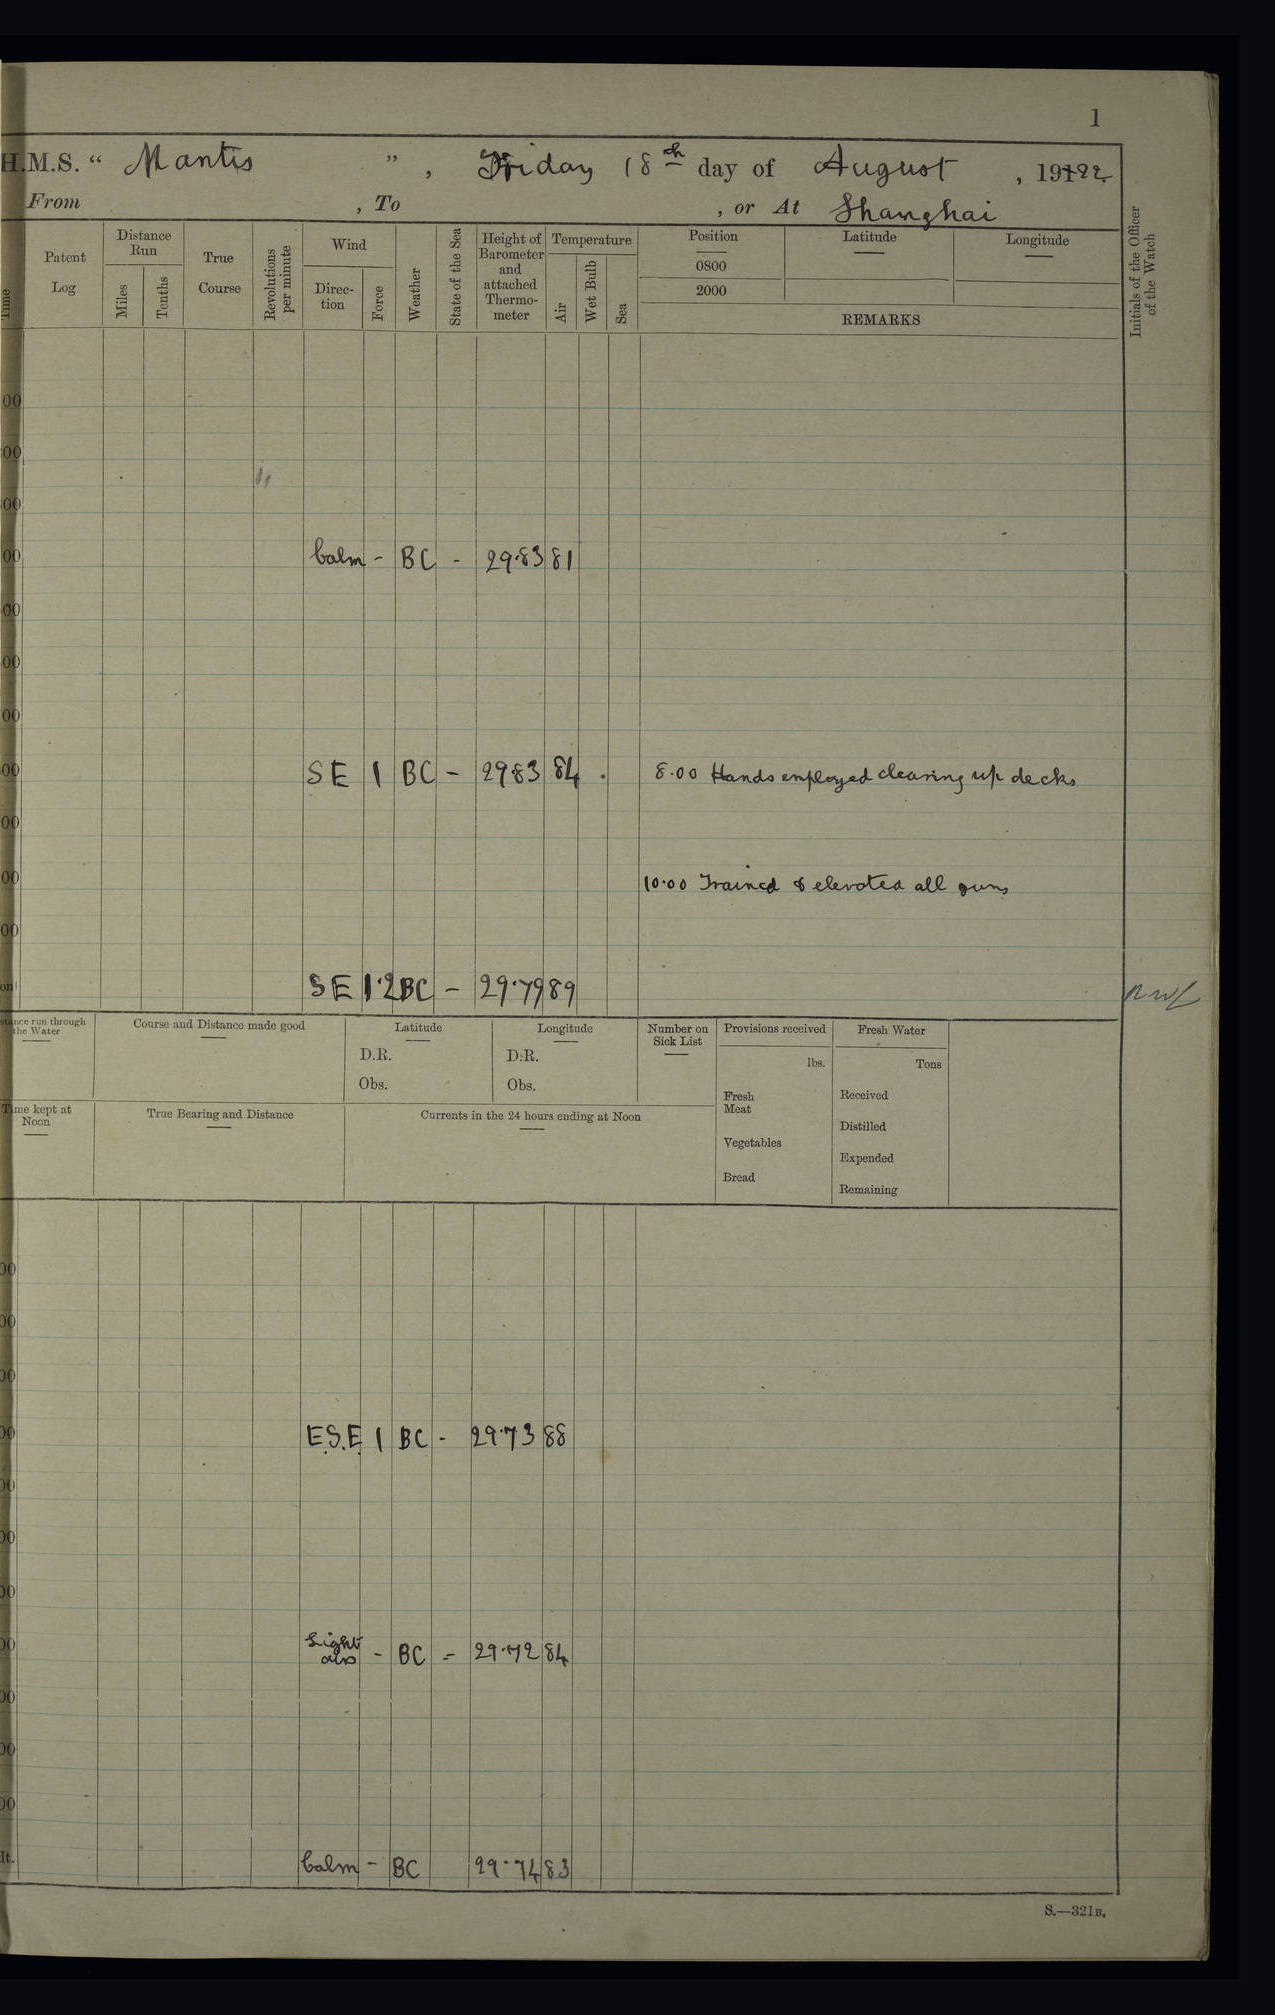 1
H.M.S. “ Mantis ” , Friday 18th day of August , 1922
From , To , or At Shanghai
Time
Patent Log
Distance Run
Miles
Tenths
True Course
Revolutions per minute
Wind
Direc-tion
Force
Weather
State of the Sea
Height of Barometer and attached Thermo-meter
Temperature
Air
Wet Bulb
Sea
Position
0800
2000
Latitude
Longitude
REMARKS
Initials of the Officer of the Watch
00
00
00
00 Calm - BC - 29.83 81
00
00
00
00 SE 1 BC - 29.83 84 . 8.00 Hands employed cleaning up decks
00
00 10.00 Trained & elevated all guns
00
on SE 1.2 BC - 29.79 89
stance run through the Water
Course and Distance made good
Latitude
D.R.
Obs.
Longitude
D.R.
Obs.
Number on Sick List
Provisions received
lbs.
Fresh Meat
Vegetables
Bread
Fresh Water
Tons
Received
Distilled
Expended
Remaining
Time kept at Noon
True Bearing and Distance
Currents in the 24 hours ending at Noon
00
00
00
00 E.S.E. 1 BC - 29.73 88
00
00
00
00 Light airs - BC = 29.72 84
00
00
00
lt. Calm - BC 29.74 83
S.—321B.